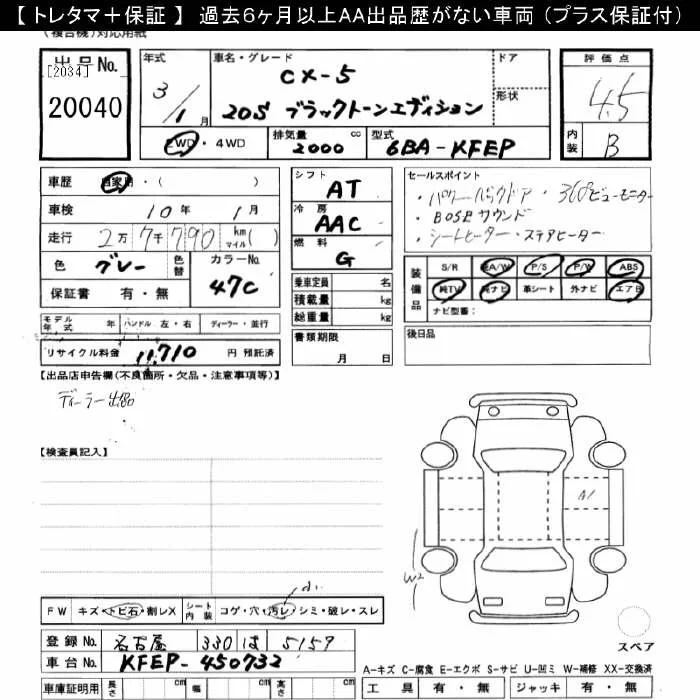 【 トレタマ＋保証 】 過去6ヶ月以上AA出品歴がない車両（プラス保証付）
(複合機)対応用紙
出品No.
[2034]
20040
年式
3/1月
車名・グレード
CX-5
20S ブラックトーンエディション
ドア
形状
評価点
4.5
内装
B
2WD・4WD
排気量
2000 cc
型式
6BA-KFEP
車歴 自家用・( )
車検 10年 1月
走行 2万7千790 km マイル( )
色 グレー 色替 カラーNo. 47C
保証書 有・無
シフト AT
冷房 AAC
燃料 G
乗車定員 名
積載量 kg
総重量 kg
書類期限
月 日
セールスポイント
・パワーバックドア ・360°ビューモニター
・BOSEサウンド
・シートヒーター・ステアヒーター
装備品
S/R EA/W P/S P/W ABS
純TV 純ナビ 革シート 外ナビ エアB
ナビ型番：
後日品
モデル年式 年 ハンドル 左・右 ディーラー・並行
リサイクル料金 11,710 円 預託済
【出品店申告欄(不良箇所・欠品・注意事項等)】
ディーラー出品
【検査員記入】
A1
W2
小
FW キズ・トビ石・割レX シート内装 コゲ・穴・汚レ・シミ・破レ・スレ
登録No. 名古屋 330 は 5159
車台No. KFEP-450732
スペア
A-キズ C-腐食 E-エクボ S-サビ U-凹ミ W-補修 XX-交換済
車庫証明用 長さ cm 幅 cm 高さ cm
工具 有・無 ジャッキ 有・無